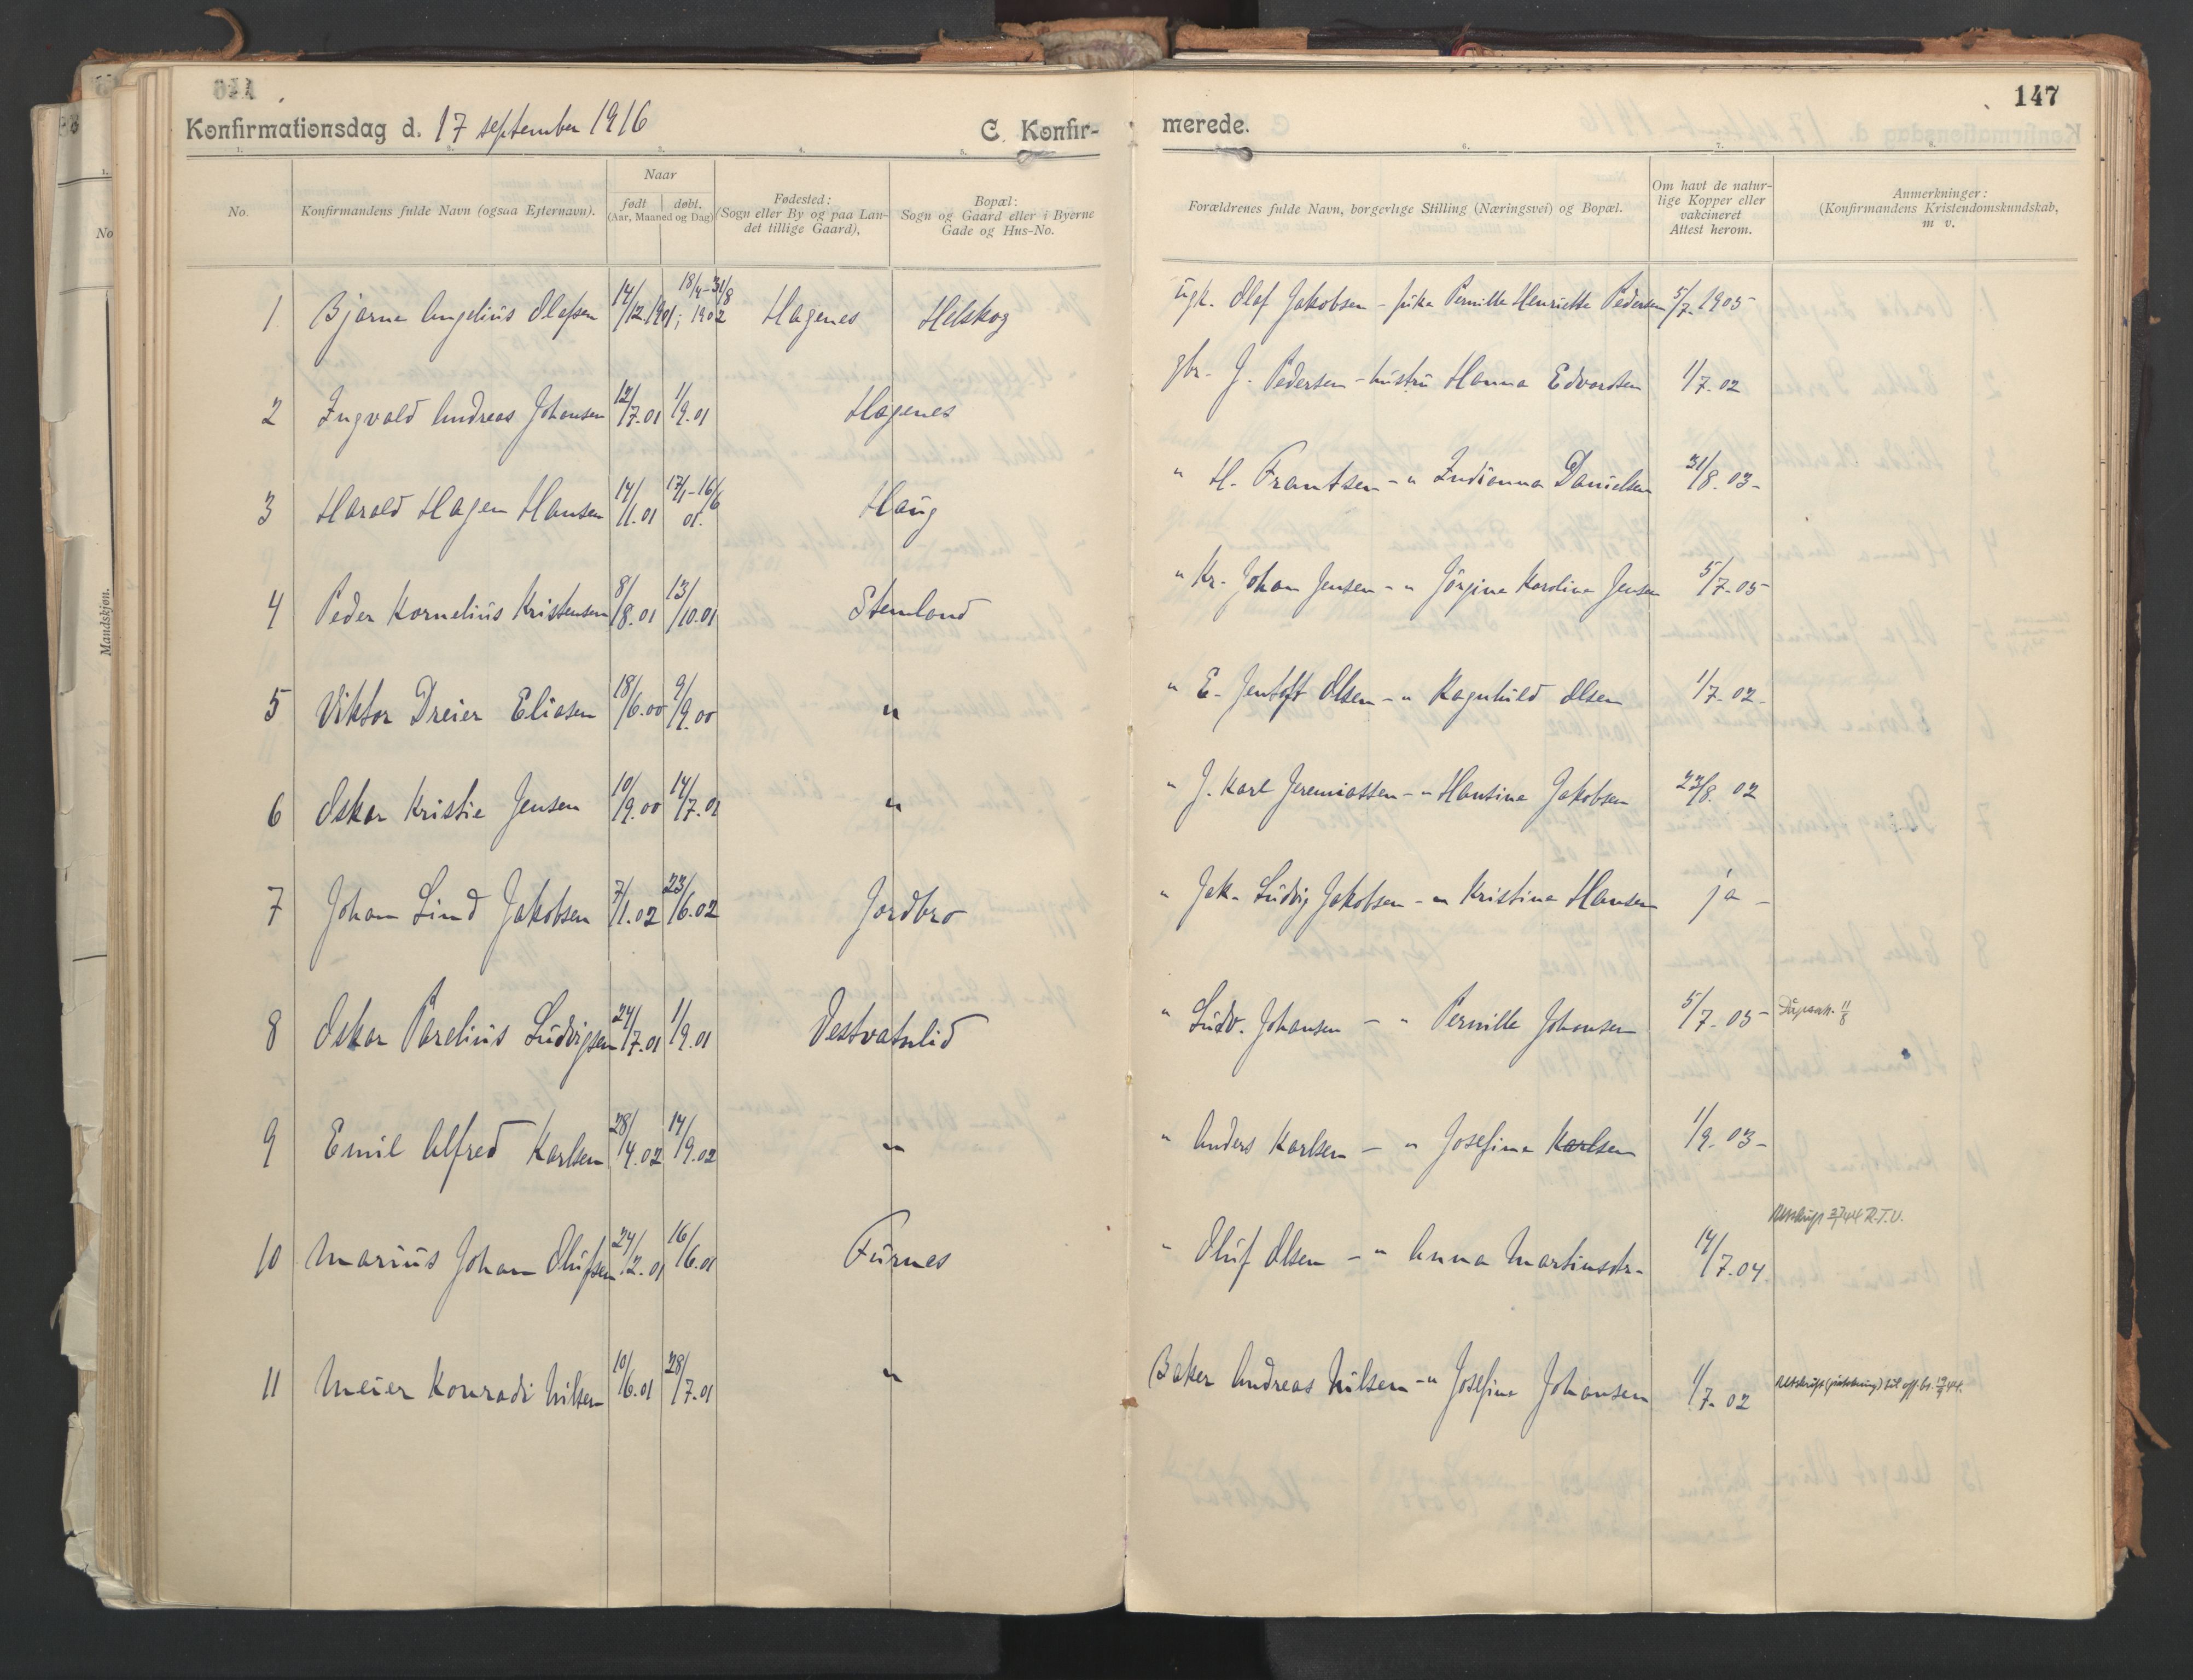 147
Konfirmationsdag d. 17 september 1916
C. Konfir-
merede.
1. 2. 3. 4. 5. 6. 7. 8.
No.
Konfirmandens fulde Navn (ogsaa Efternavn).
Naar
født
døbt.
(Aar, Maaned og Dag)
Fødested:
(Sogn eller By og paa Lan-
det tillige Gaard),
Bopæl:
Sogn og Gaard eller i Byerne
Gade og Hus-No.
Forældrenes fulde Navn, borgerlige Stilling (Næringsvei) og Bopæl.
Om havt de natur-
lige Kopper eller
vakcineret
Attest herom.
Anmerkninger:
(Konfirmandens Kristendomskundskab,
m v.
No
Mandskjøn.
1 Bjarne Angelius Olafsen 14/12.1901; 18/4-31/8 1902 Hagenes Helskog ugk. Olaf Jakobsen - pike Pernille Henriette Pedersen 5/7.1905
2 Ingvald Andreas Johansen 12/7.01 1/9.01 Hagenes gbr. J. Pedersen - hustru Hanna Edvardsen 1/7.02
3 Harald Hagen Hansen 14/1.01 17/1-16/6 01. Haug " H. Frantsen - " Indianna Danielsen 31/8.03-
4 Peder Kornelius Kristensen 8/8.01 13/10.01 Stemland " Kr. Johan Jensen - " Jörgine Karoline Jensen 5/7.05
5 Viktor Dreier Eliasen 18/6.00 9/9.00 " " E. Jentoft Olsen - " Ragnhild Olsen 1/7.02.
6 Oskar Kristie Jensen 10/9.00 14/7.01 " " J. Karl Jeremiassen - " Hansine Jakobsen 23/8. 02
7 Johan Lind Jakobsen 7/1.02 23/6.02 Jordbro " Jak. Ludvig Jakobsen - " Kristine Hansen ja -
8 Oskar Parelius Ludvigsen 24/7.01 1/9.01 Vestvatnlid " Ludv. Johansen - " Pernille Johansen 5/7.05 11/8
9 Emil Alfred Karlsen 28/4.02 14/9.02 " " Anders Karlsen - " Josefine Karlsen 1/9.03-
10 Marius Johan Olufsen 24/2.01 16/6.01 Furnes " Oluf Olsen - " Anna Martinsdtr. 14/7.04 Utskrift 3/7 44 R.T.V.
11 Meier Konradi Nilsen 10/6.01 28/7.01 " Baker Andreas Nilsen - " Josefine Johansen 1/7.02 Utskrift til off. br. 44.